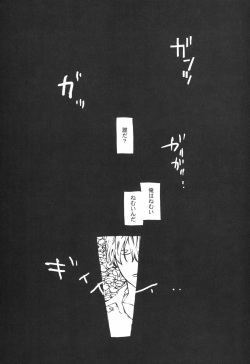 ガンッ
ガッ
ガガッ
誰だ？
俺はねむい
ねむいんだ
ギイイ